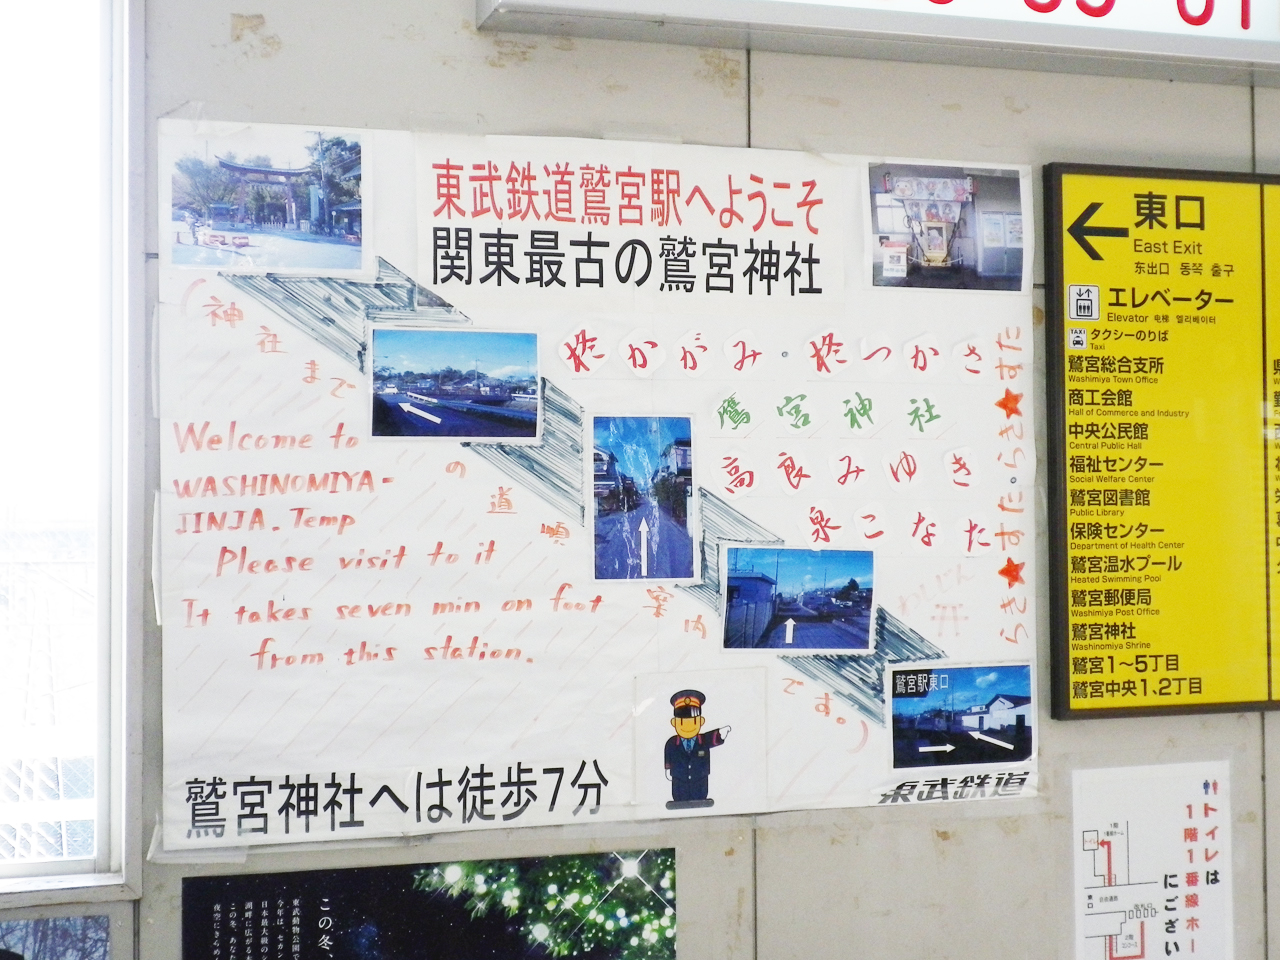 東武鉄道鷲宮駅へようこそ
関東最古の鷲宮神社
(神社まで
の道順
案内
です。)
Welcome to
WASHINOMIYA-
JINJA. Temp
Please visit to it
It takes seven min on foot
from this station.
柊かがみ・柊つかさ
鷹宮神社
高良みゆき
泉こなた
らき★すた。らき★すた
鷲宮駅東口
鷲宮神社へは徒歩7分
東武鉄道
東口
East Exit
东出口 동쪽 출구
エレベーター
Elevator 电梯 엘리베이터
TAXI
タクシーのりば
Taxi
鷲宮総合支所
Washimiya Town Office
商工会館
Hall of Commerce and Industry
中央公民館
Central Public Hall
福祉センター
Social Welfare Center
鷲宮図書館
Public Library
保険センター
Department of Health Center
鷲宮温水プール
Heated Swimming Pool
鷲宮郵便局
Washimiya Post Office
鷲宮神社
Washinomiya Shrine
鷲宮1〜5丁目
鷲宮中央1、2丁目
トイレは
1階1番線ホー
にござい
この冬、
東武動物公園で